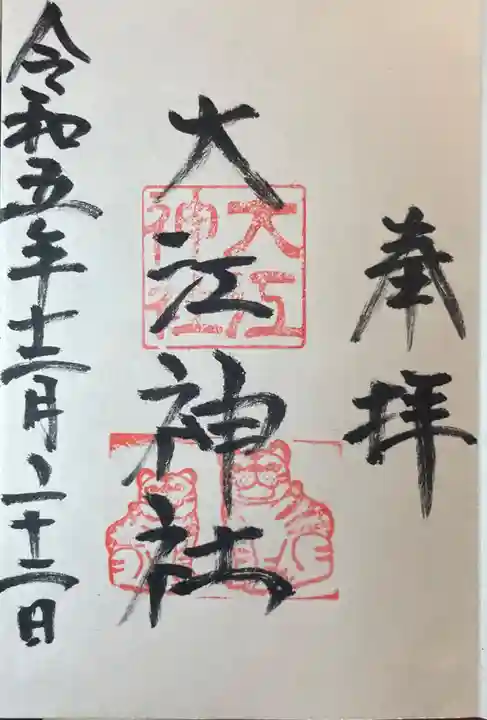 奉拝
大江神社
大江神社
令和五年十二月二十二日